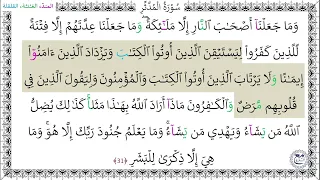 سُورَةُ المُدَّثِّر
وَمَا جَعَلْنَآ أَصْحَٰبَ ٱلنَّارِ إِلَّا مَلَٰٓئِكَةً ۙ وَمَا جَعَلْنَا عِدَّتَهُمْ إِلَّا فِتْنَةً
لِّلَّذِينَ كَفَرُوا۟ لِيَسْتَيْقِنَ ٱلَّذِينَ أُوتُوا۟ ٱلْكِتَٰبَ وَيَزْدَادَ ٱلَّذِينَ ءَامَنُوٓا۟
إِيمَٰنًا ۙ وَلَا يَرْتَابَ ٱلَّذِينَ أُوتُوا۟ ٱلْكِتَٰبَ وَٱلْمُؤْمِنُونَ ۙ وَلِيَقُولَ ٱلَّذِينَ فِى
قُلُوبِهِم مَّرَضٌ وَٱلْكَٰفِرُونَ مَاذَآ أَرَادَ ٱللَّهُ بِهَٰذَا مَثَلًا ۚ كَذَٰلِكَ يُضِلُّ
ٱللَّهُ مَن يَشَآءُ وَيَهْدِى مَن يَشَآءُ ۚ وَمَا يَعْلَمُ جُنُودَ رَبِّكَ إِلَّا هُوَ ۚ وَمَا
هِىَ إِلَّا ذِكْرَىٰ لِلْبَشَرِ ﴿31﴾